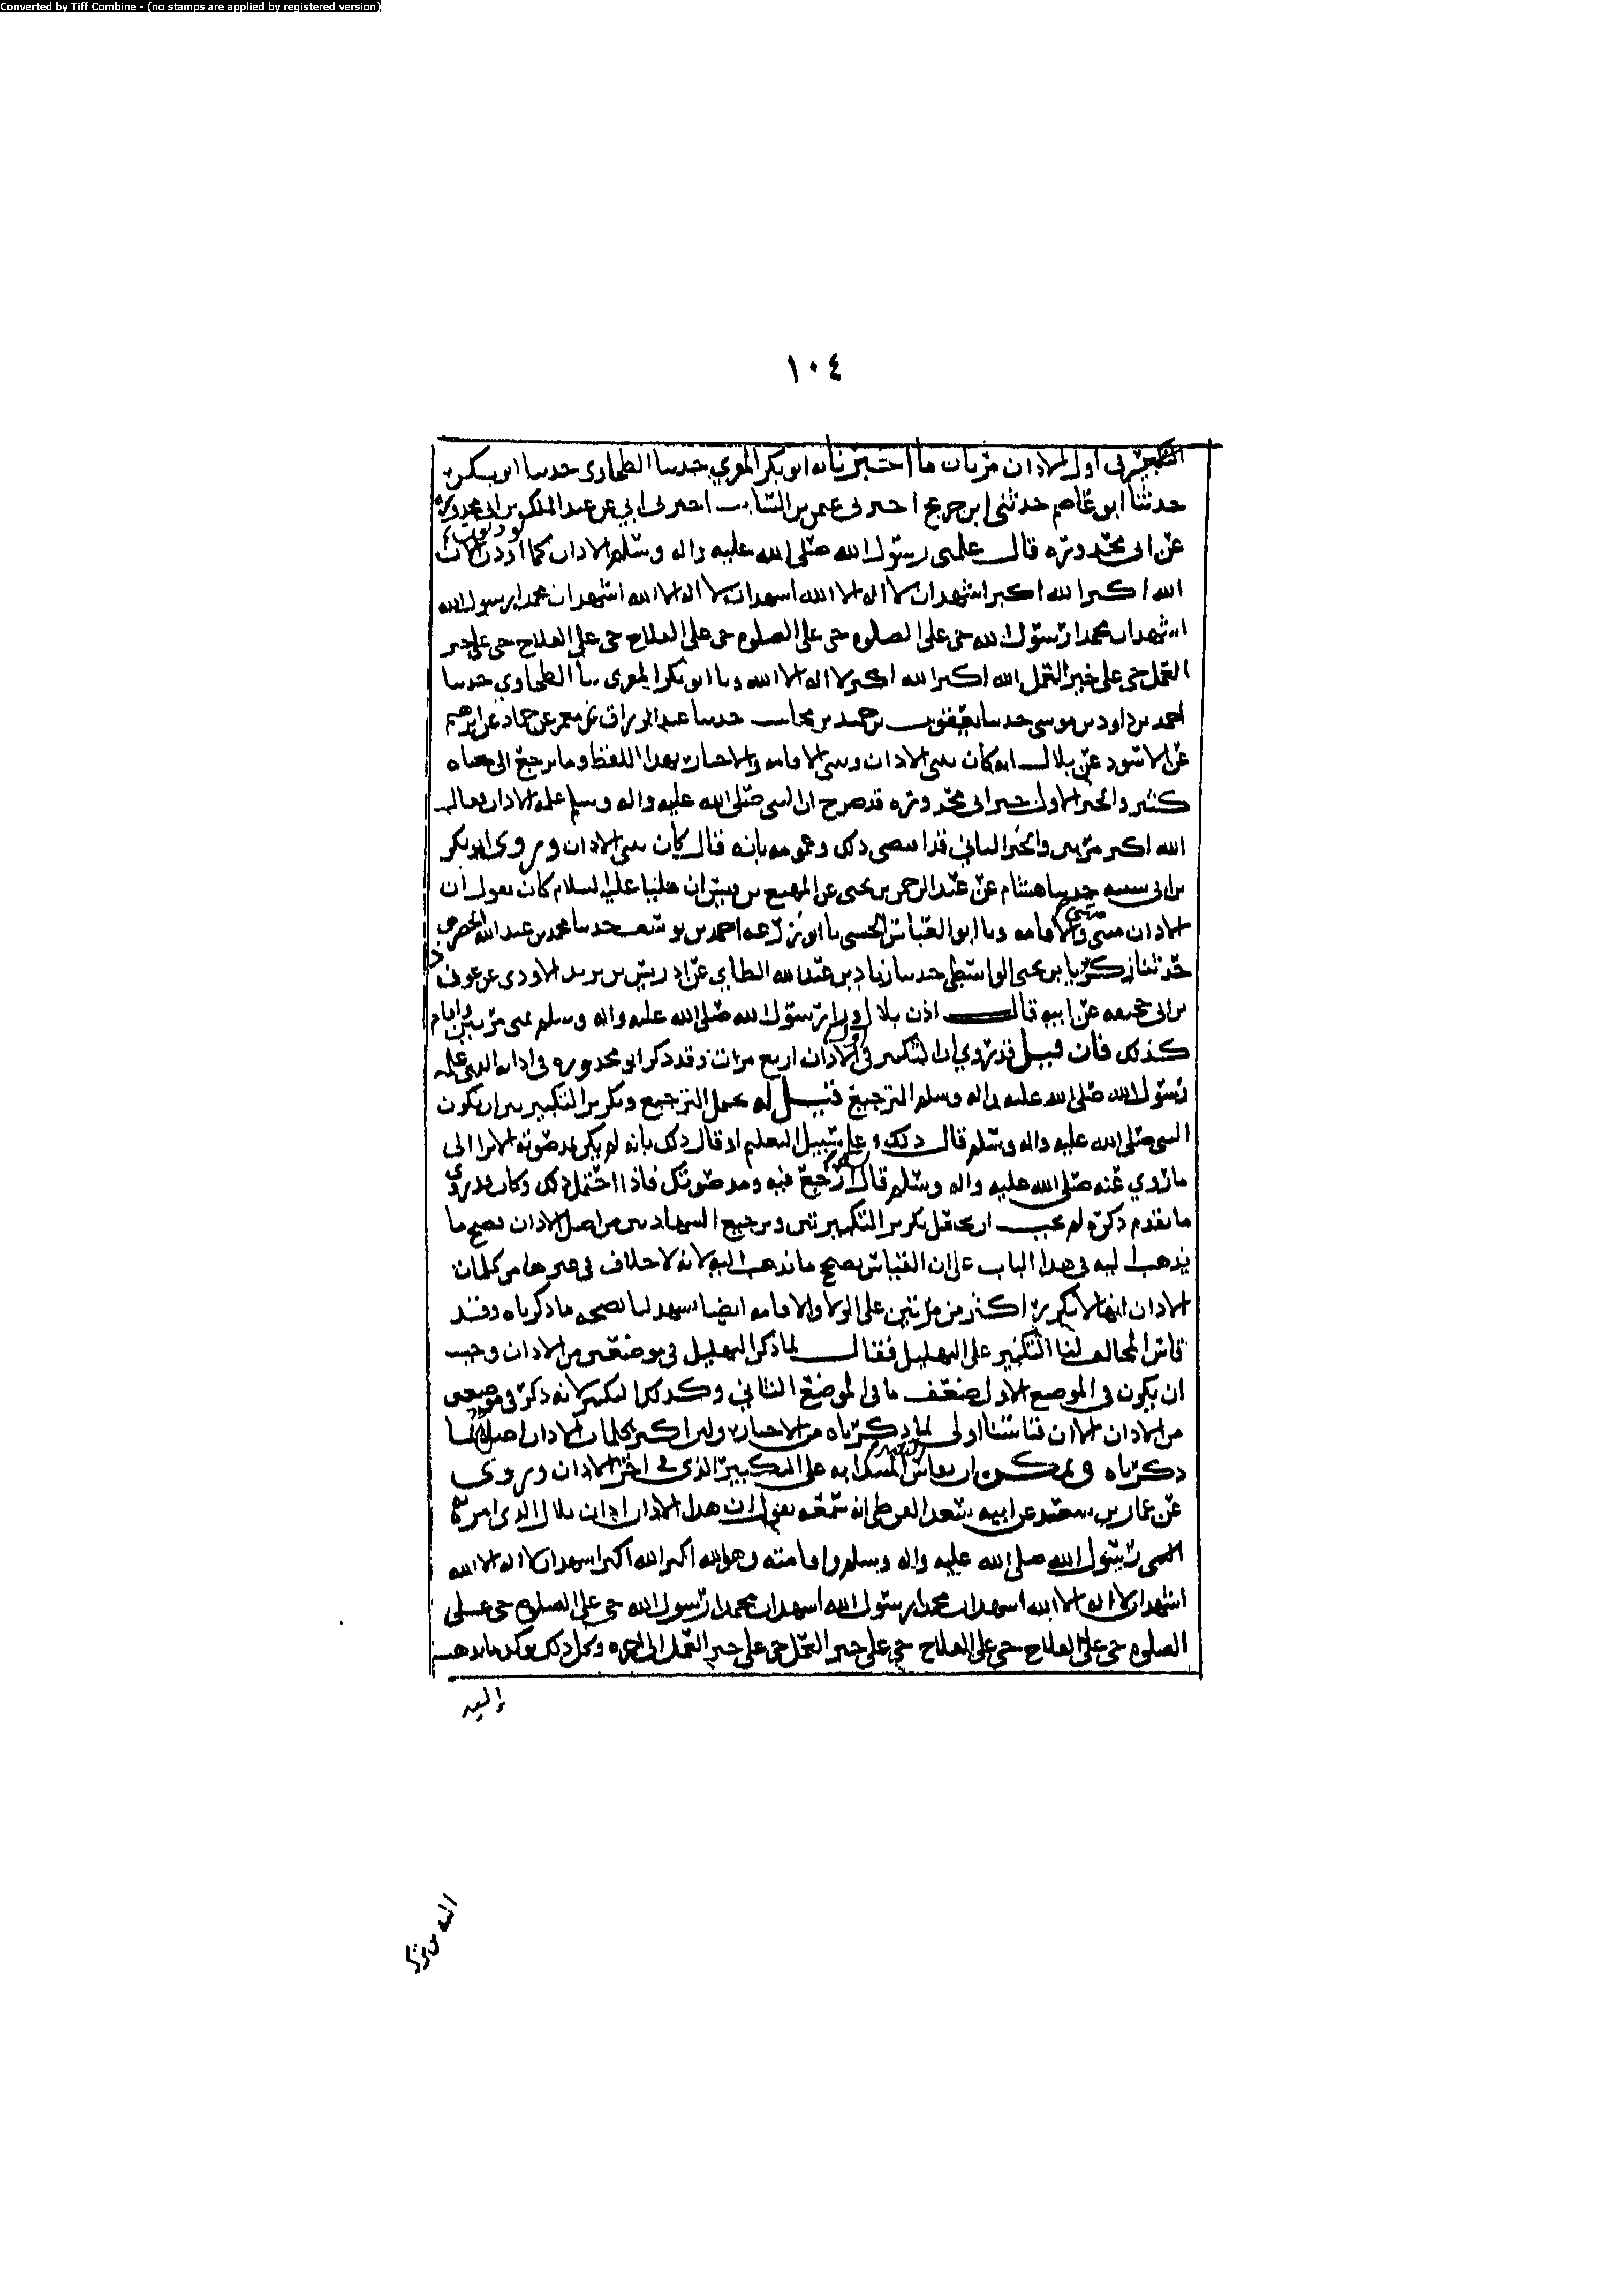 Converted by Tiff Combine - (no stamps are applied by registered version)
١٠٤
التكبير في اول الاذان مرتان ما اخبرنا به ابو بكر المقري حدثنا الطحاوي حدثنا ابو بكره
حدثنا ابو عاصم حدثني ابن جريج اخبرني عثمن بن السائب اخبرني ابي عن عبد الملك بن ابي محذوره
عن ابي محذورة قال علمني رسول الله صلى الله عليه واله وسلم الاذان كما تؤذنون الان
الله اكبر الله اكبر اشهد ان لا اله الا الله اشهد ان لا اله الا الله اشهد ان محمدا رسول الله
اشهد ان محمدا رسول الله حي على الصلوه حي على الصلوه حي على الفلاح حي على الفلاح حي على خير
العمل حي على خير العمل الله اكبر الله اكبر لا اله الا الله وبا ابو بكر المقري ثنا الطحاوي حدثنا
احمد بن داود بن موسى حدثنا يعقوب بن حميد بن كاسب حدثنا عبد الرزاق عن معمر عن حماد عن ابرهيم
عن الاسود عن بلال انه كان يثني الاذان ويثني الاقامه والاخبار بهذا اللفظ وما يرجع الى معناه
كثير والخبر الاول خبر ابي محذوره قد صرح ان النبي صلى الله عليه واله وسلم علمه الاذان فقال
الله اكبر مرتين والخبر الثاني قد اقتضى ذلك وعمومه بانه قال كان يثني الاذان وروى ابو بكر
بن ابي شيبه حدثنا هشام عن عبد الرحمن بن يحيى عن الهجيع بن قيس ان عليا عليه السلام كان يقول ان
الاذان مثنى والاقامه مثنى وبا ابو العباس الحسني با ابو زرعه احمد بن يوسف حدثنا محمد بن عبد الله الحضرمي
حدثنا زكريا بن يحيى الواسطي حدثنا زياد بن عبد الله الطاي عن ادريس بن يزيد الاودي عن عون
بن ابي جحيفه عن ابيه قال اذن بلال لرسول الله صلى الله عليه واله وسلم بمنى مرتين واقام
كذلك فان قيل قد روي ان التكبير في اول الاذان اربع مرات وقد ذكر ابو محذوره في اذانه الذي علمه
رسول الله صلى الله عليه واله وسلم الترجيع قيل له يحمل الترجيع وتكرير التكبير بين ان يكون
النبي صلى الله عليه واله وسلم قال ذلك على سبيل التعليم او قال ذلك بانه لم يكن مد صوته الا ترا الى
ما روي عنه صلى الله عليه واله وسلم قال ارجع فيه ومد صوتك فاذا احتمل ذلك وكان قد روي
ما تقدم ذكره لم يجب ان يجعل تكرير التكبيرتين وترجيع الشهادتين من اصل الاذان فصح ما
نذهب اليه في هذا الباب على ان القياس يصحح ما نذهب اليه لانه لا خلاف في غيرها من كلمات
الاذان انها لا تكرر اكثر من مرتين على الولا والاقامه ايضا تشهد لنا بصحه ما ذكرناه وقد
قاس المخالف لنا التكبير على التهليل فقال لما ذكر التهليل في موضعين من الاذان وجب
ان يكون في الموضع الاول ضعف ما في الموضع الثاني وكذلك التكبير لانه ذكر في موضعين
من الاذان الا ان قياسنا اولى لما ذكرناه من الاخبار ولان اكثر كلمات الاذان اصل لما
ذكرناه ويمكن ان يقاس التكبير المبتدا به على التكبير الذي في اخر الاذان وروي
عن عمار بن سعد عن ابيه سعد القرظ انه سمعه يقول ان هذا الاذان اذان بلال الذي امر به
النبي رسول الله صلى الله عليه واله وسلم واقامته وهو الله اكبر الله اكبر اشهد ان لا اله الا الله
اشهد ان لا اله الا الله اشهد ان محمدا رسول الله اشهد ان محمدا رسول الله حي على الصلوه حي على
الصلوه حي على الفلاح حي على الفلاح حي على خير العمل حي على خير العمل الى اخره وكل ذلك يوكد ما نذهب
إليه